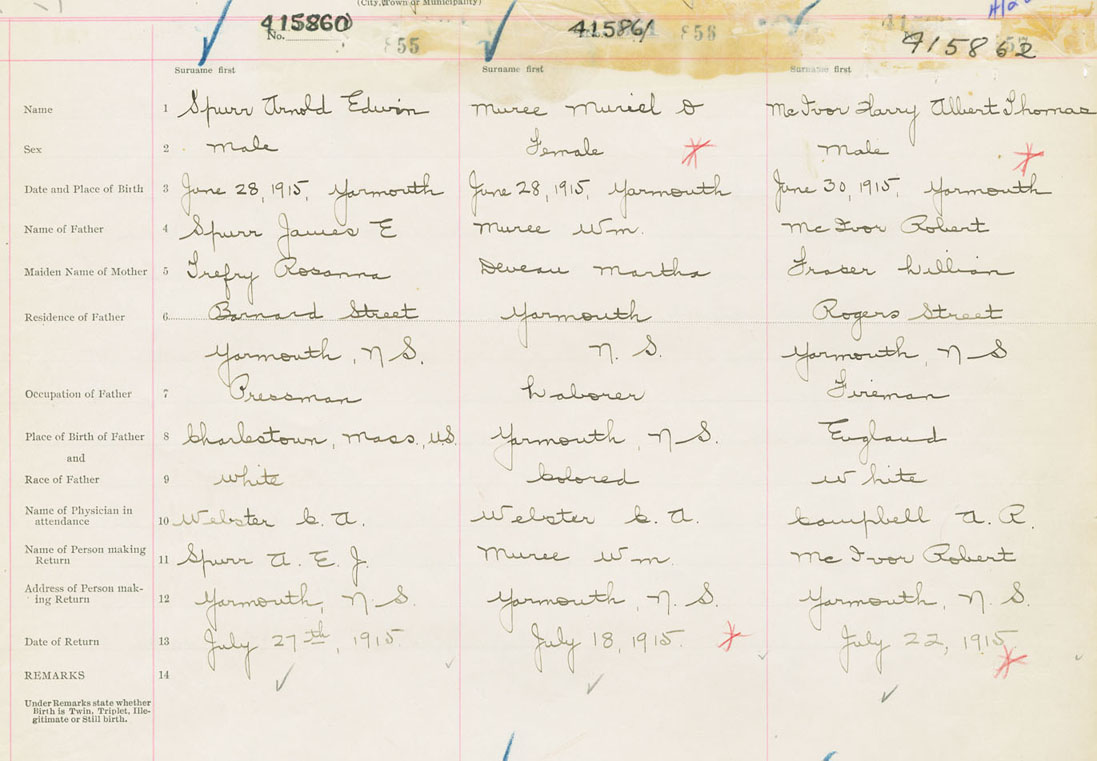 (City, Town or Municipality)
No. 415860 855
415861 856
415862
Surname first Surname first Surname first
Name 1 Spurr Arnold Edwin Muree Muriel O Mc Ivor Harry Albert Thomas
Sex 2 Male Female Male
Date and Place of Birth 3 June 28, 1915, Yarmouth June 28, 1915, Yarmouth June 30, 1915, Yarmouth
Name of Father 4 Spurr James E Muree Wm. Mc Ivor Robert
Maiden Name of Mother 5 Trefry Rosanna Deveau Martha Fraser Lillian
Residence of Father 6 Barnard Street Yarmouth Rogers Street
Yarmouth, N S. N. S. Yarmouth, N S
Occupation of Father 7 Pressman Laborer Fireman
Place of Birth of Father 8 Charlestown, Mass., U.S. Yarmouth, N S. England
and
Race of Father 9 White Colored White
Name of Physician in
attendance 10 Webster C. A. Webster C. A. Campbell A. R.
Name of Person making
Return 11 Spurr A. E. J. Muree Wm. Mc Ivor Robert
Address of Person mak-
ing Return 12 Yarmouth, N. S. Yarmouth, N. S. Yarmouth, N. S.
Date of Return 13 July 27th, 1915. July 18, 1915. July 22, 1915.
REMARKS 14
Under Remarks state whether
Birth is Twin, Triplet, Ille-
gitimate or Still birth.